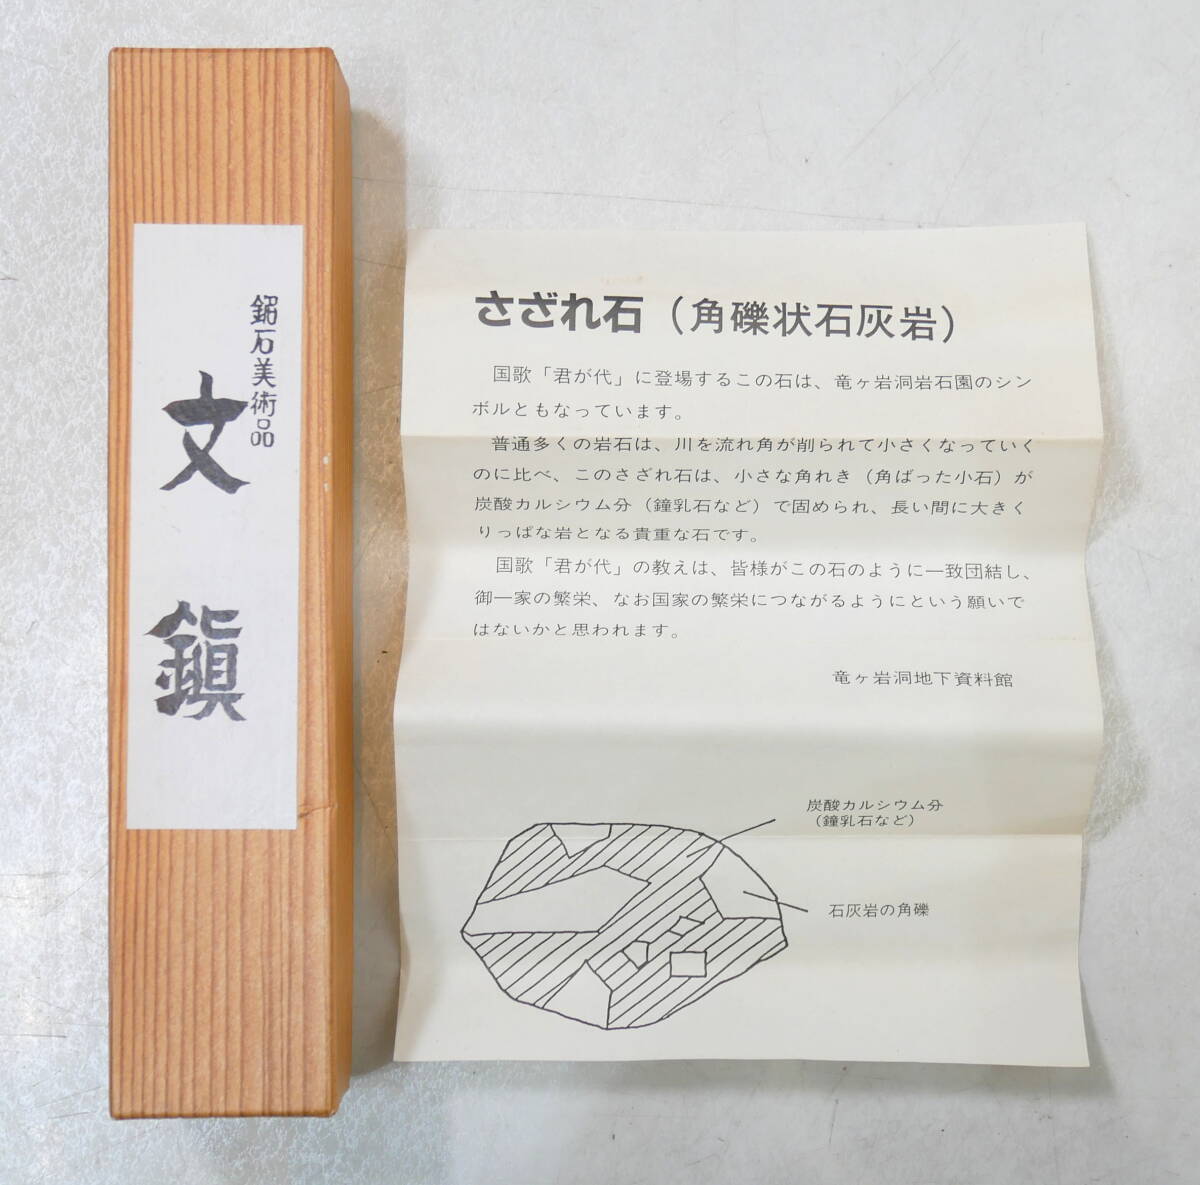 銘石美術品
文鎭
さざれ石（角礫状石灰岩）
国歌「君が代」に登場するこの石は、竜ヶ岩洞岩石園のシン
ボルともなっています。
普通多くの岩石は、川を流れ角が削られて小さくなっていく
のに比べ、このさざれ石は、小さな角れき（角ばった小石）が
炭酸カルシウム分（鐘乳石など）で固められ、長い間に大きく
りっぱな岩となる貴重な石です。
国歌「君が代」の教えは、皆様がこの石のように一致団結し、
御一家の繁栄、なお国家の繁栄につながるようにという願いで
はないかと思われます。
竜ヶ岩洞地下資料館
炭酸カルシウム分
（鐘乳石など）
石灰岩の角礫